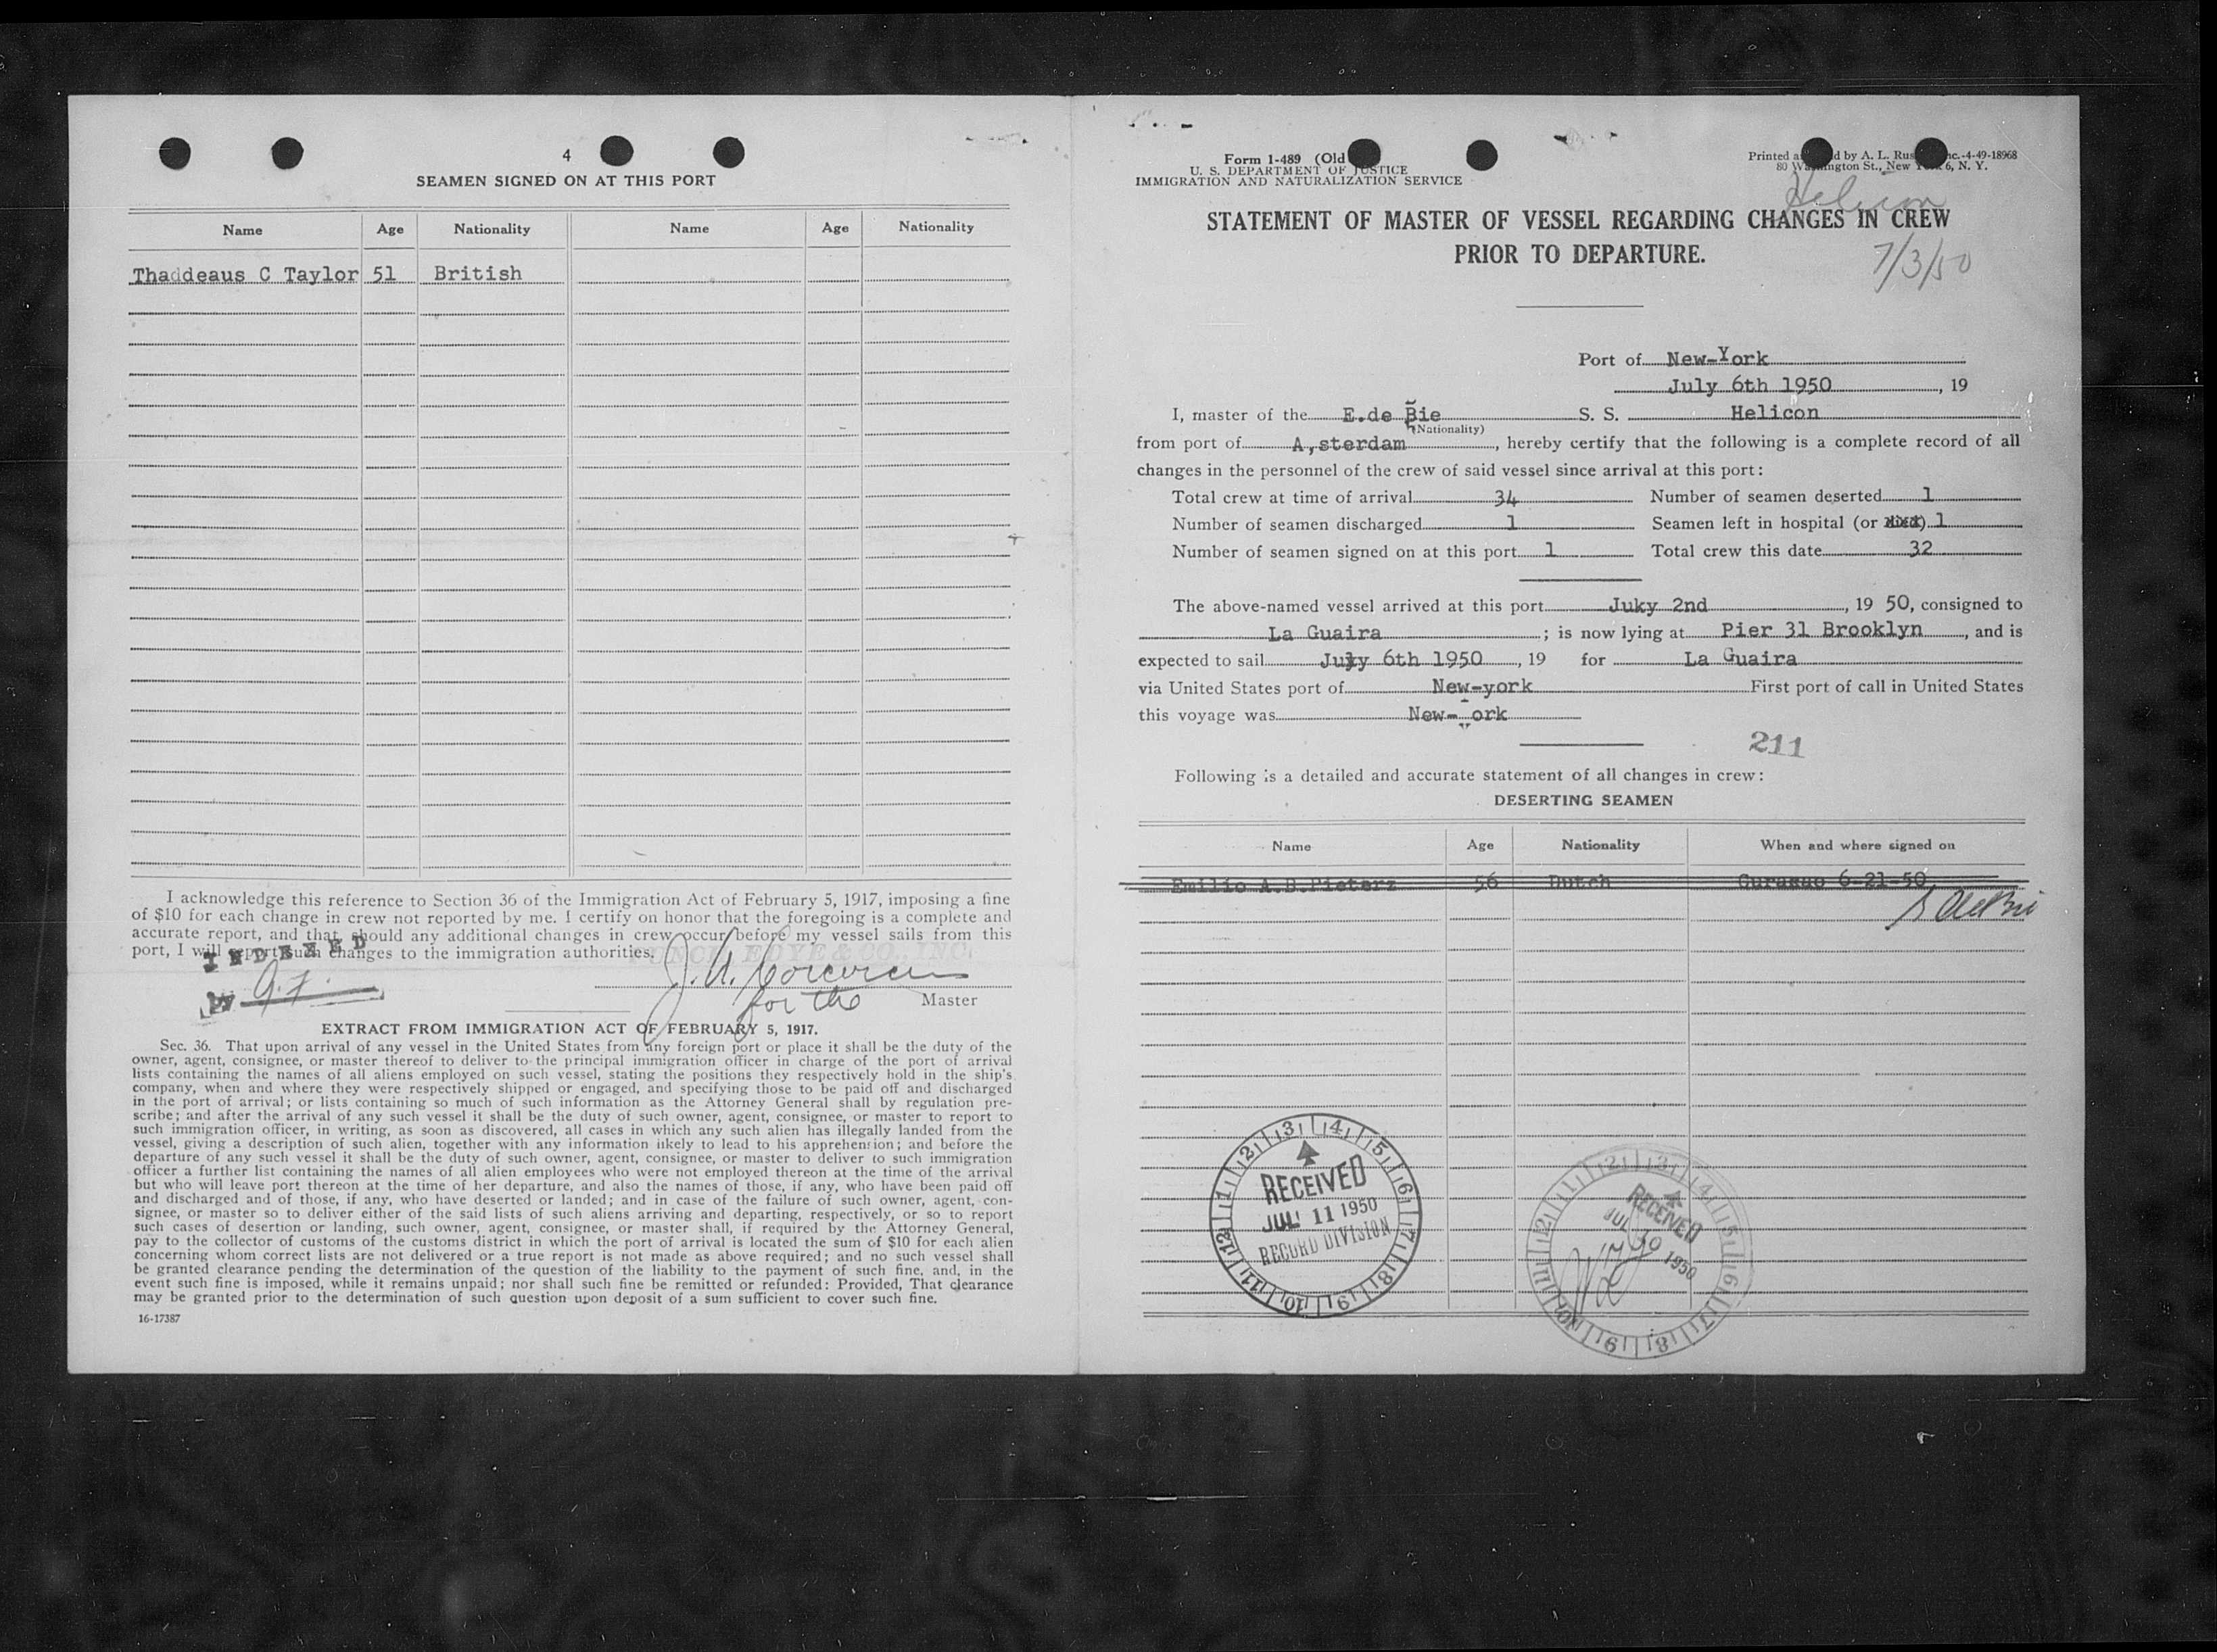 4
SEAMEN SIGNED ON AT THIS PORT
Name Age Nationality Name Age Nationality
Thaddeaus C Taylor 51 British
I acknowledge this reference to Section 36 of the Immigration Act of February 5, 1917, imposing a fine
of $10 for each change in crew not reported by me. I certify on honor that the foregoing is a complete and
accurate report, and that, should any additional changes in crew occur before my vessel sails from this
port, I will report such changes to the immigration authorities.
INDEXED
J. A. Corcoran
for the Master
EXTRACT FROM IMMIGRATION ACT OF FEBRUARY 5, 1917.
Sec. 36. That upon arrival of any vessel in the United States from any foreign port or place it shall be the duty of the
owner, agent, consignee, or master thereof to deliver to the principal immigration officer in charge of the port of arrival
lists containing the names of all aliens employed on such vessel, stating the positions they respectively hold in the ship's
company, when and where they were respectively shipped or engaged, and specifying those to be paid off and discharged
in the port of arrival; or lists containing so much of such information as the Attorney General shall by regulation pre-
scribe; and after the arrival of any such vessel it shall be the duty of such owner, agent, consignee, or master to report to
such immigration officer, in writing, as soon as discovered, all cases in which any such alien has illegally landed from the
vessel, giving a description of such alien, together with any information likely to lead to his apprehension; and before the
departure of any such vessel it shall be the duty of such owner, agent, consignee, or master to deliver to such immigration
officer a further list containing the names of all alien employees who were not employed thereon at the time of the arrival
but who will leave port thereon at the time of her departure, and also the names of those, if any, who have been paid off
and discharged and of those, if any, who have deserted or landed; and in case of the failure of such owner, agent, con-
signee, or master so to deliver either of the said lists of such aliens arriving and departing, respectively, or so to report
such cases of desertion or landing, such owner, agent, consignee, or master shall, if required by the Attorney General,
pay to the collector of customs of the customs district in which the port of arrival is located the sum of $10 for each alien
concerning whom correct lists are not delivered or a true report is not made as above required; and no such vessel shall
be granted clearance pending the determination of the question of the liability to the payment of such fine, and, in the
event such fine is imposed, while it remains unpaid; nor shall such fine be remitted or refunded: Provided, That clearance
may be granted prior to the determination of such question upon deposit of a sum sufficient to cover such fine.
16-17387
Form 1-489 (Old
U. S. DEPARTMENT OF JUSTICE
IMMIGRATION AND NATURALIZATION SERVICE
Printed a d by A. L. Rus nc.-4-49-18968
80 Washington St., New York 6, N. Y.
Helicon
STATEMENT OF MASTER OF VESSEL REGARDING CHANGES IN CREW
PRIOR TO DEPARTURE.
7/3/50
Port of New-York
July 6th 1950, 19
I, master of the E.de Bie S. S. Helicon
(Nationality)
from port of A,sterdam, hereby certify that the following is a complete record of all
changes in the personnel of the crew of said vessel since arrival at this port:
Total crew at time of arrival 34 Number of seamen deserted 1
Number of seamen discharged 1 Seamen left in hospital (or died) 1
Number of seamen signed on at this port 1 Total crew this date 32
The above-named vessel arrived at this port Juky 2nd, 19 50, consigned to
La Guaira; is now lying at Pier 31 Brooklyn, and is
expected to sail July 6th 1950, 19 for La Guaira
via United States port of New-york First port of call in United States
this voyage was New-York
211
Following is a detailed and accurate statement of all changes in crew:
DESERTING SEAMEN
Name Age Nationality When and where signed on
Emilio A.B.Pieterz 56 Dutch Curacao 6-21-50
RECEIVED
JUL 11 1950
RECORD DIVISION
1 2 3 4 5 6 7 8 9 10 11 12
RECEIVED
JUL 10 1950
1 2 3 4 5 6 7 8 9 10 11 12